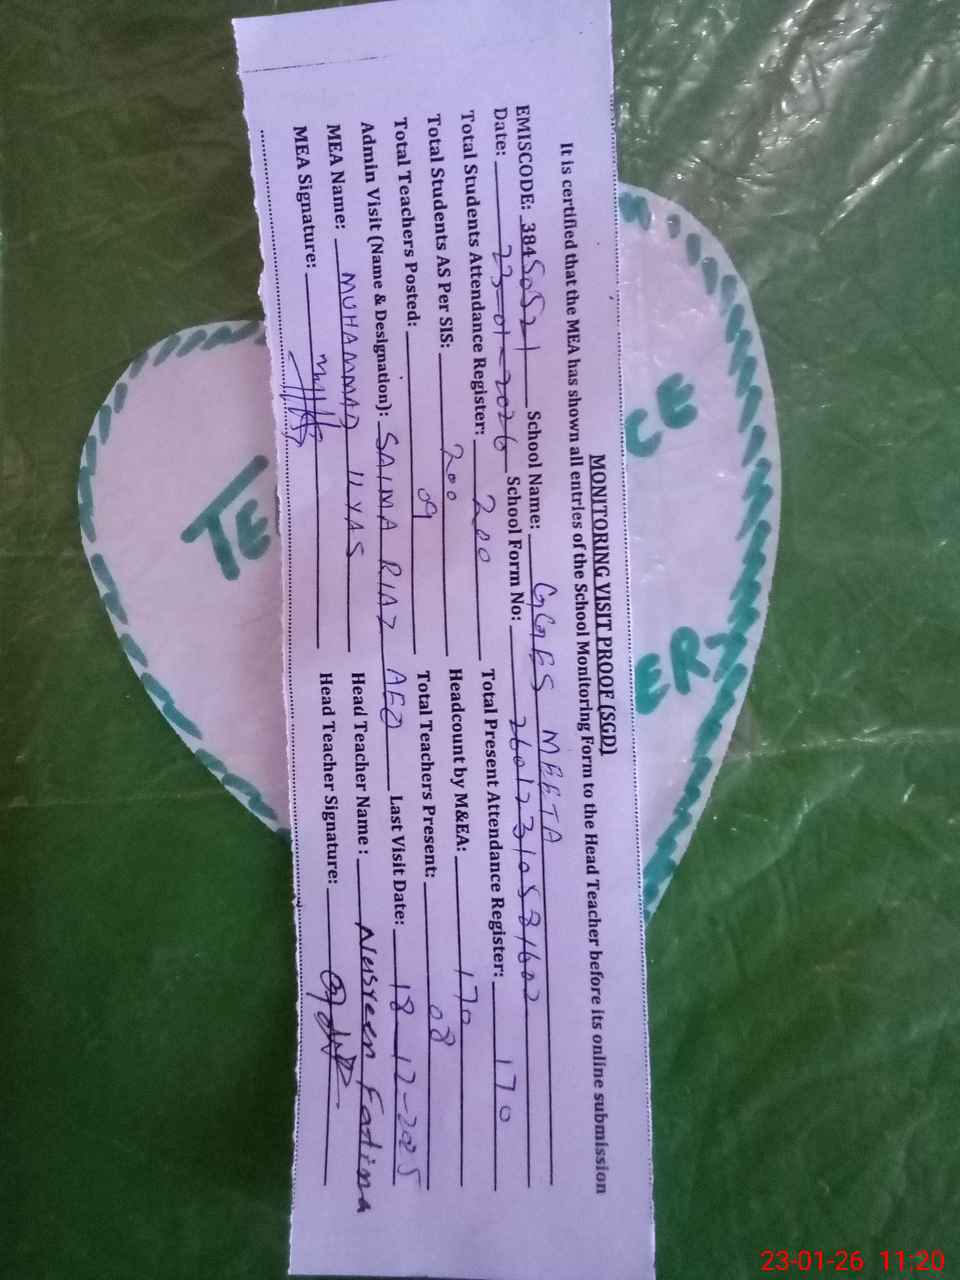 MONITORING VISIT PROOF (SGD)
It is certified that the MEA has shown all entries of the School Monitoring Form to the Head Teacher before its online submission
EMISCODE: 38450521 School Name: GGES MEETA
Date: 23-01-2026 School Form No: 26012310581602
Total Students Attendance Register: 200 Total Present Attendance Register: 170
Total Students AS Per SIS: 200 Headcount by M&EA: 170
Total Teachers Posted: 09 Total Teachers Present: 08
Admin Visit (Name & Designation): SAIMA RIAZ AEO Last Visit Date: 18-12-2025
MEA Name: MUHAMMAD ILYAS Head Teacher Name: Nasreen Fatima
MEA Signature: Head Teacher Signature:
TE
CE
ERT
23-01-26 11:20